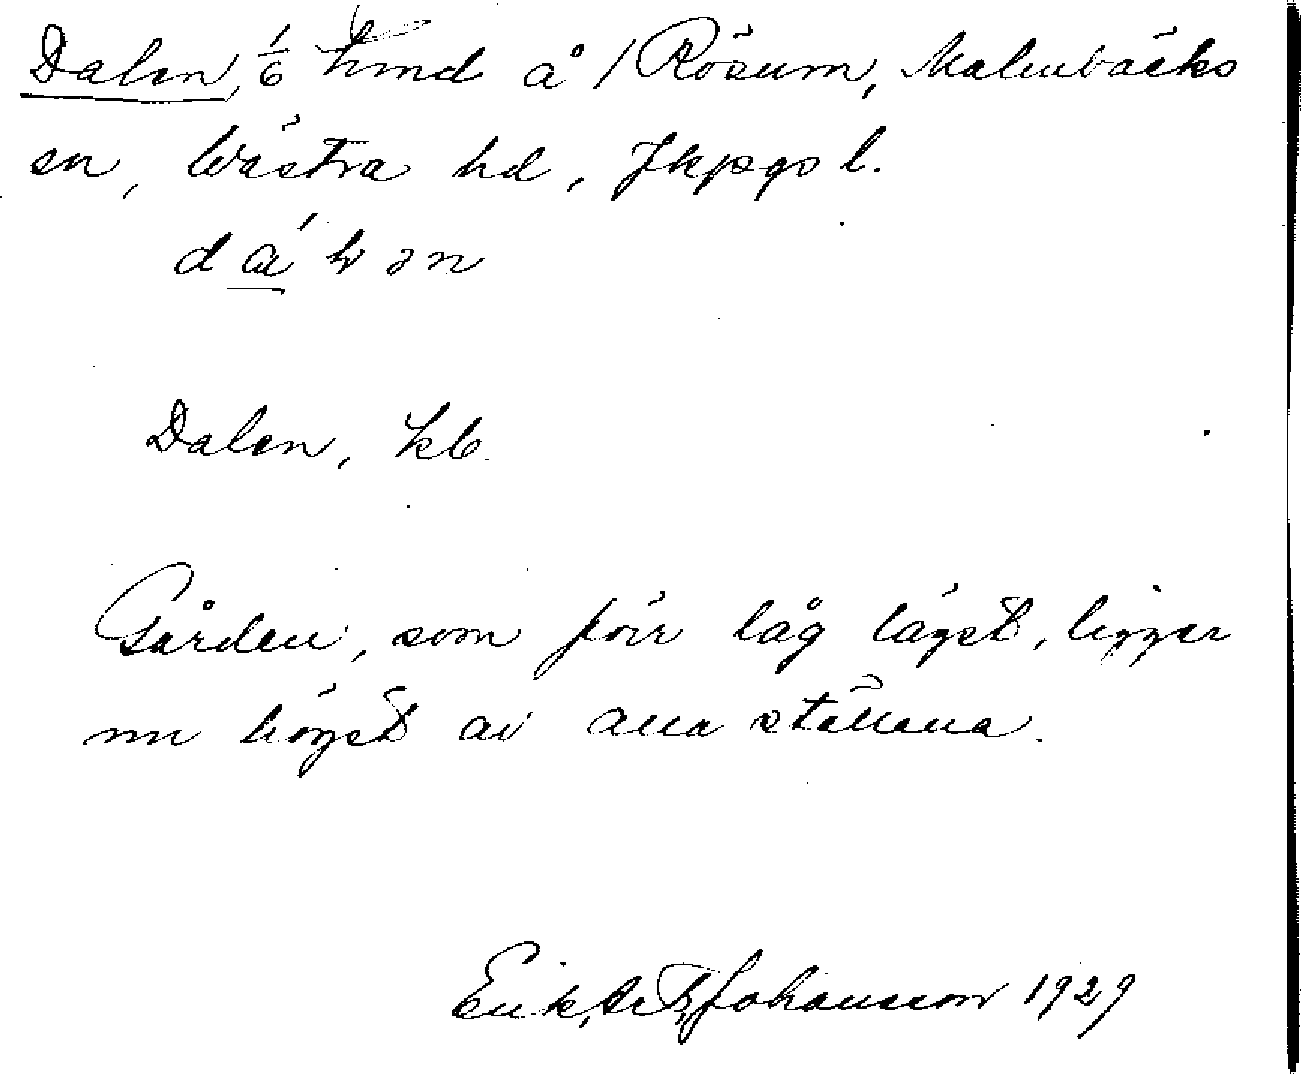 Dalen, 1/6 hmd å / Rösum, Malmbäcks
sn, Västra hd, Jkpgs l.
Dalen, kb.
Gården, som förr låg lägst, ligger
nu högst av alla ställena.
Erik Johansson 1929